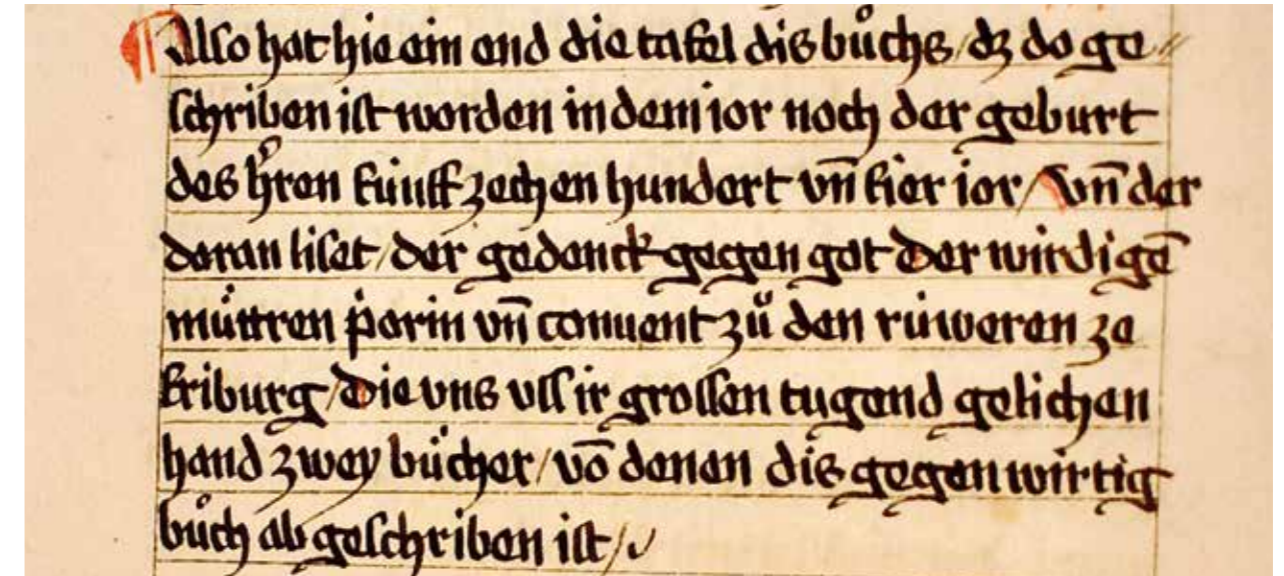 ¶ Also hat hie ein end die tafel dis bůchs / dz do ge //
schriben ist worden in dem ior noch der geburt
des hˀren fúnff zechen hundert vn̄ fier ior / Vn̄ der
daran liset / der gedenck gegen got der wirdigē
můttren pˀorin vn̄ conuent zů den rúweren ze
friburg / die vns vss ir grossen tugend gelichen
hand zwey bücher / vō denen dis gegenwirtig
bůch ab geschriben ist /